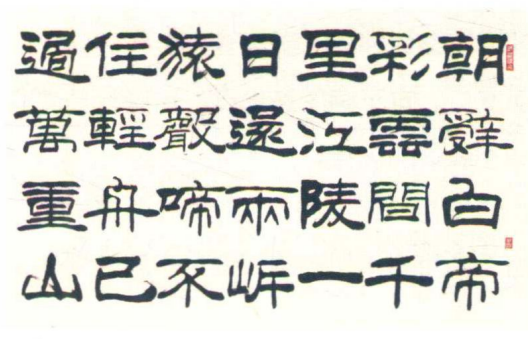 朝辭白帝
彩雲間千
里江陵一
日還兩岸
猿聲啼不
住輕舟已
過萬重山